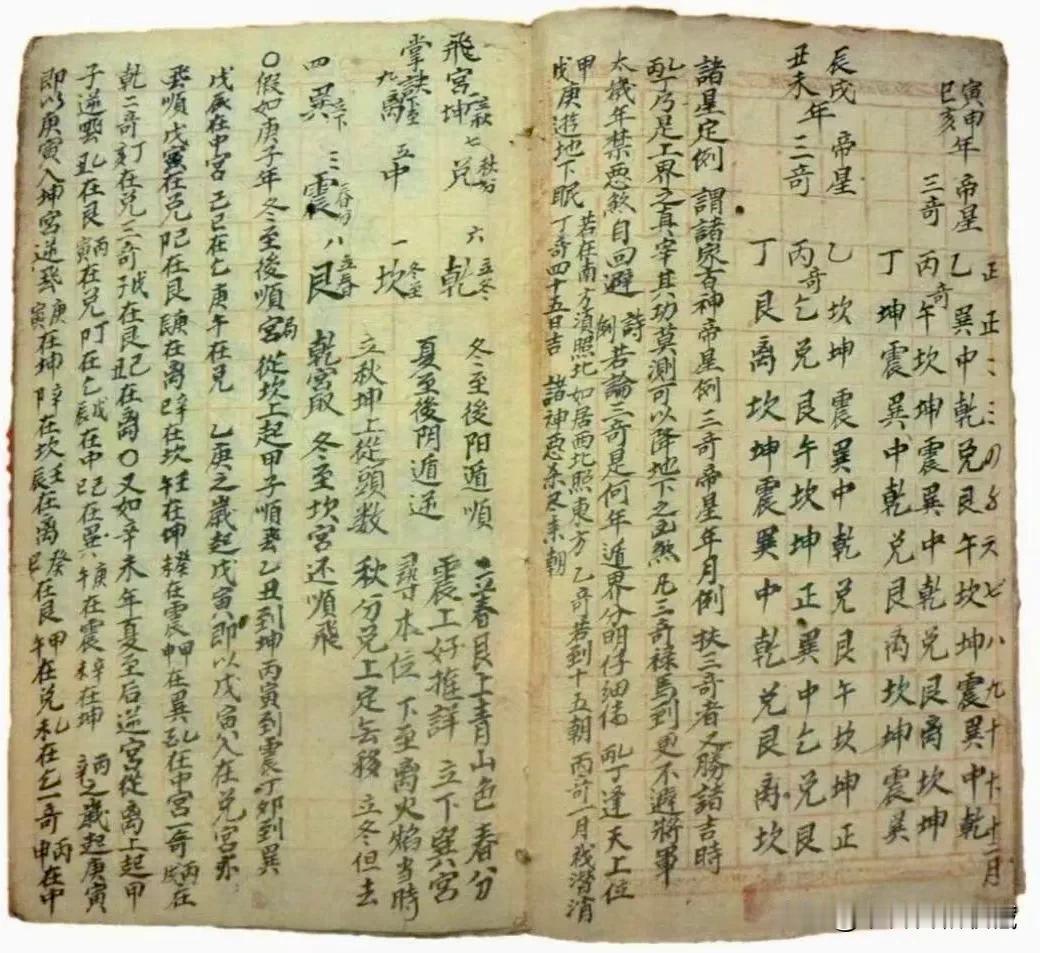 寅申
巳亥年 帝星
三奇
正 二 三 〤 〥 六 七 八 九 十 十一 十二月
乙 巽中乾兌艮午坎坤震巽中乾
丙奇 午坎坤震巽中乾兌艮离坎坤
丁 坤震巽中乾兌艮离坎坤震巽
辰戌 帝星
丑未年 三奇
乙 坎坤震巽中乾兌艮午坎坤
丙奇 乞兌艮午坎坤震巽中乞兌艮
丁 艮离坎坤震巽中乾兌艮离坎
諸星定例 謂諸家百神帝星例三奇帝星年月例 扶三奇者又勝諸吉時
乙丙丁乃是上界之真宰其功莫測可以降地下之凶煞凡三奇祿馬到更不避將軍
太歲年禁惡煞自回避 詩例 若論三奇是何年遁界分明仔細 丙丁逢天上位
甲戊庚遊地下眠 若在南方須照北如居西北照東方 乙奇若到十五朝 丙奇一月我潛消
丁奇四十五日吉 諸神惡杀尽来朝
飛宮掌訣
坤 立秋 七兌 秋分 六乾 立冬
九離 夏至 五中 一坎 冬至
四巽 立下 三震 春分 八艮 立春
冬至後阳遁順 立春艮上青山色春分
夏至後阴遁逆 震工好推詳 立下巽宮
立秋坤上從頭数 尋本位 下至離火焰当時
乾宮取 冬至坎宮还順飛 秋分兌上定无移 立冬但去
〇假如庚子年冬至後順宮局從坎上起甲子順飛乙丑到坤丙寅到震丁卯到巽
戊辰在中宮 己巳在乞庚午在兌 乙庚之歲起戊寅即以戊寅入在兌宮亦
飛順戊寅在兌 己卯在艮 庚辰在離 辛巳在坎 壬午在坤 癸未在震 甲申在巽 乙酉在中宮一奇 丙戌在
乾二奇 丁亥在兌三奇 戊子在艮 己丑在離〇又如辛未年夏至后逆宮從離上起甲
子逆飛 乙丑在艮 丙寅在兌 丁卯在乞 戊辰在中 己巳在巽 庚午在震 辛未在坤 丙辛之歲起庚寅
即以庚寅入坤宮逆飛 庚寅在坤 辛卯在坎 壬辰在离 癸巳在艮 甲午在兌 乙未在乞一奇 丙申在中